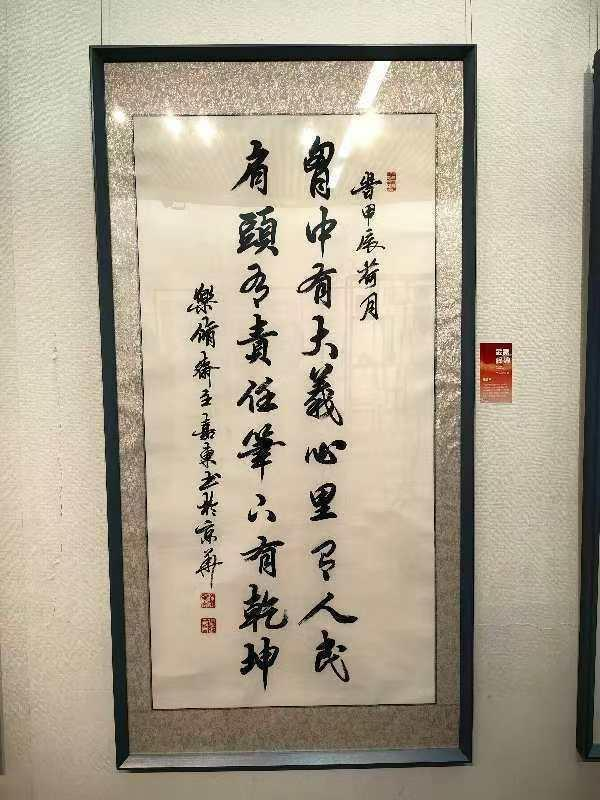 旹甲辰荷月
胷中有大義心里有人民
肩頭有責任筆下有乾坤
樂脩齋主嘉東书於京華